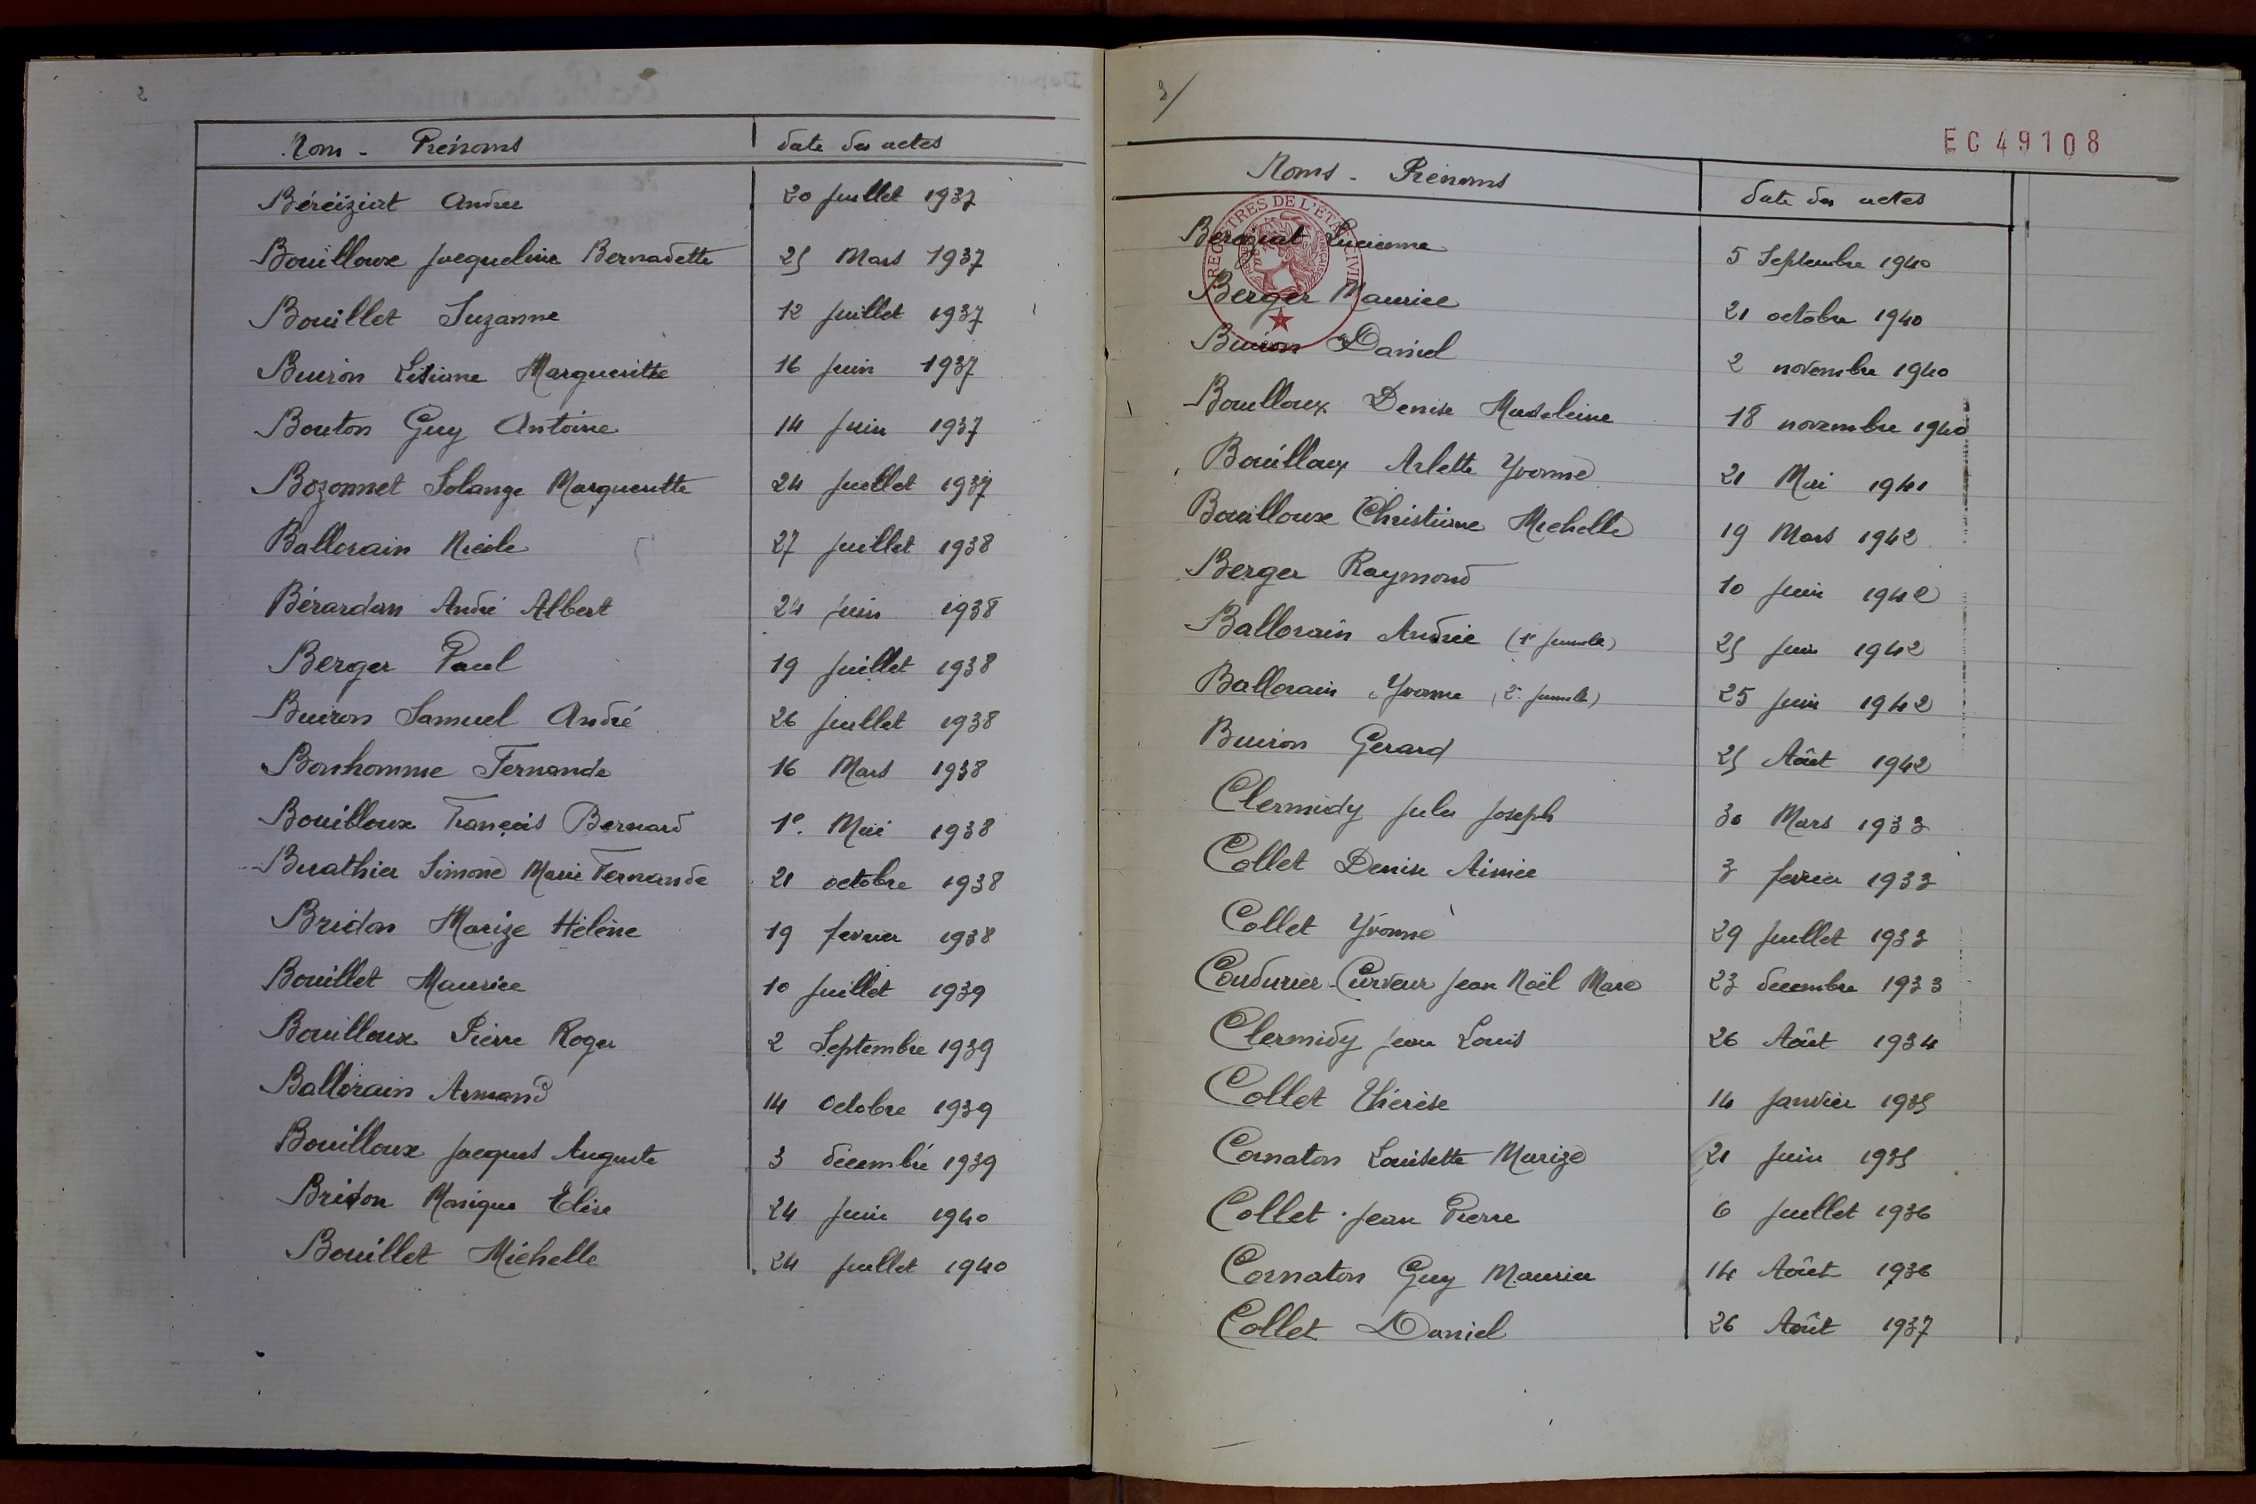 2
Nom - Prénoms date des actes
Béréiziat Andrée 20 Juillet 1937
Bouilloux Jacqueline Bernadette 25 Mars 1937
Bouillet Suzanne 12 Juillet 1937
Buiron Liliane Margueritte 16 Juin 1937
Bouton Guy Antoine 14 Juin 1937
Bozonnet Solange Margueritte 24 Juillet 1937
Ballorain Nicole 27 Juillet 1938
Bérardan André Albert 24 Juin 1938
Berger Paul 19 Juillet 1938
Buiron Samuel André 26 Juillet 1938
Bonhomme Fernande 16 Mars 1938
Bouilloux François Bernard 1e. Mai 1938
Burathier Simone Marie Fernande 21 octobre 1938
Bridon Marize Hélène 19 fevrier 1938
Bouillet Maurice 10 Juillet 1939
Bouilloux Pierre Roger 2 Septembre 1939
Ballorain Armand 14 Octobre 1939
Bouilloux Jacques Auguste 3 décembre 1939
Bridon Monique Elise 24 Juin 1940
Bouillet Michelle 24 Juillet 1940
3/
EC 49108
Noms - Prénoms date des actes
REGISTRES DE L'ETAT CIVIL
Beréziat Lucienne 5 Septembre 1940
Berger Maurice 21 octobre 1940
Buiron Daniel 2 novembre 1940
Bouilloux Denise Madeleine 18 novembre 1940
Bouilloux Arlette Yvonne 21 Mai 1941
Bouilloux Christiane Michelle 19 Mars 1942
Berger Raymond 10 Juin 1942
Ballorain Andrée (1e jumelle) 25 Juin 1942
Ballorain Yvonne (2e jumelle) 25 Juin 1942
Buiron Gerard 25 Août 1942
Clermidy Jules Joseph 30 Mars 1933
Collet Denise Aimée 3 fevrier 1933
Collet Yvonne 29 Juillet 1933
Coudurier-Curveur Jean Noël Marc 23 decembre 1933
Clermidy Jean Louis 26 Août 1934
Collet Thérèse 14 Janvier 1935
Cornaton Louisette Marize 21 Juin 1935
Collet Jean Pierre 6 Juillet 1936
Cornaton Guy Maurice 14 Août 1936
Collet Daniel 26 Août 1937